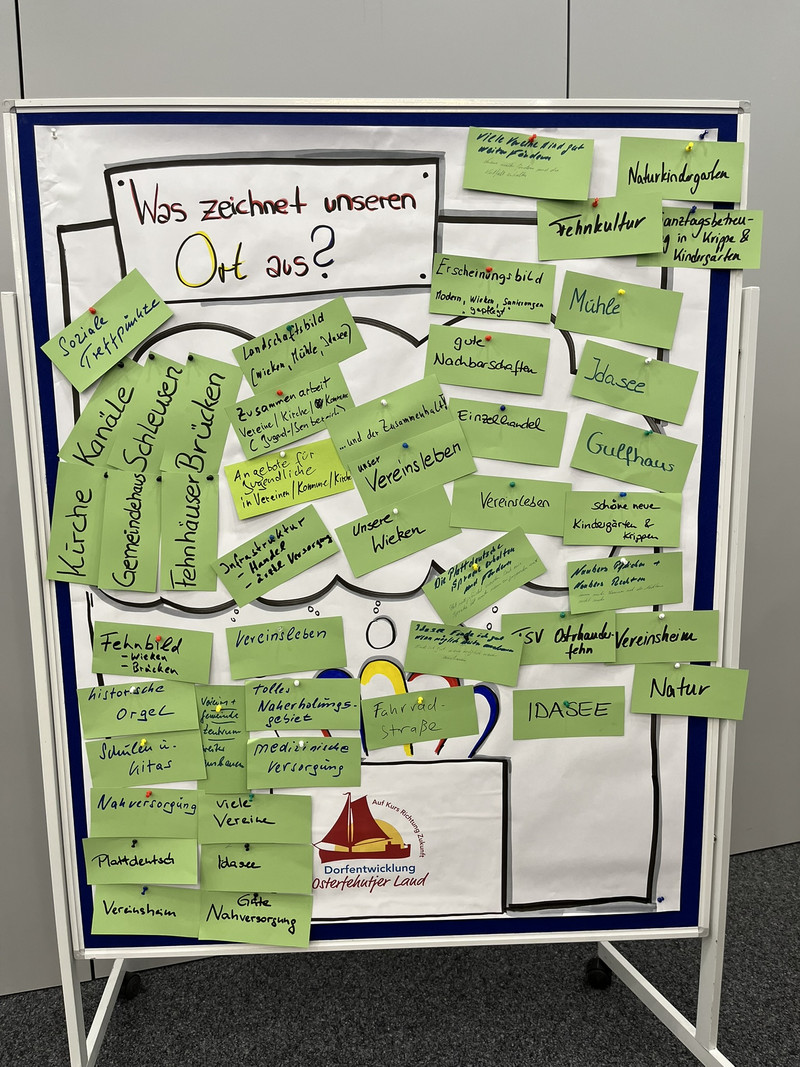 Was zeichnet unseren
Ort aus?
viele Vereine sind gut
weiter fördern
Naturkindergarten
Fehnkultur
anztagsbetreu-
g in Krippe &
Kindergärten
Erscheinungsbild
Modern, Wieken, Sanierungen
"gepflegt"
Mühle
Soziale
Treffpunkte
Landschaftsbild
(Wieken, Mühle, Idasee)
gute
Nachbarschaften
Idasee
Kanäle
Schleusen
Brücken
Zusammenarbeit
Vereine/Kirche/Kommune
...und der Zusammenhalt
unser
Vereinsleben
Einzelhandel
Gulfhaus
Angebote für
Jugendliche
in Vereinen/Kommune/Kirche
Kirche
Gemeindehaus
Fehnhäuser
Vereinsleben
schöne neue
Kindergärten &
Krippen
Infrastruktur
- Handel
- ärztl. Versorgung
Unsere
Wieken
Die Plattdeutsche
Sprache erhalten
und fördern
Fehnbild
- Wieken
- Brücken
Vereinsleben
Idasee finde ich gut
TSV Ostrhauder-
fehn
Vereinsheim
Natur
historische
Orgel
Verein +
Gemeinde
zentrum
weiter
tolles
Naherholungs-
gebiet
Fahrrad-
straße
IDASEE
Schulen u.
Kitas
medizinische
Versorgung
Nahversorgung
viele
Vereine
Plattdeutsch
Idasee
Vereinsheim
Gute
Nahversorgung
Auf Kurs Richtung Zukunft
Dorfentwicklung
Osterfehntjer Land